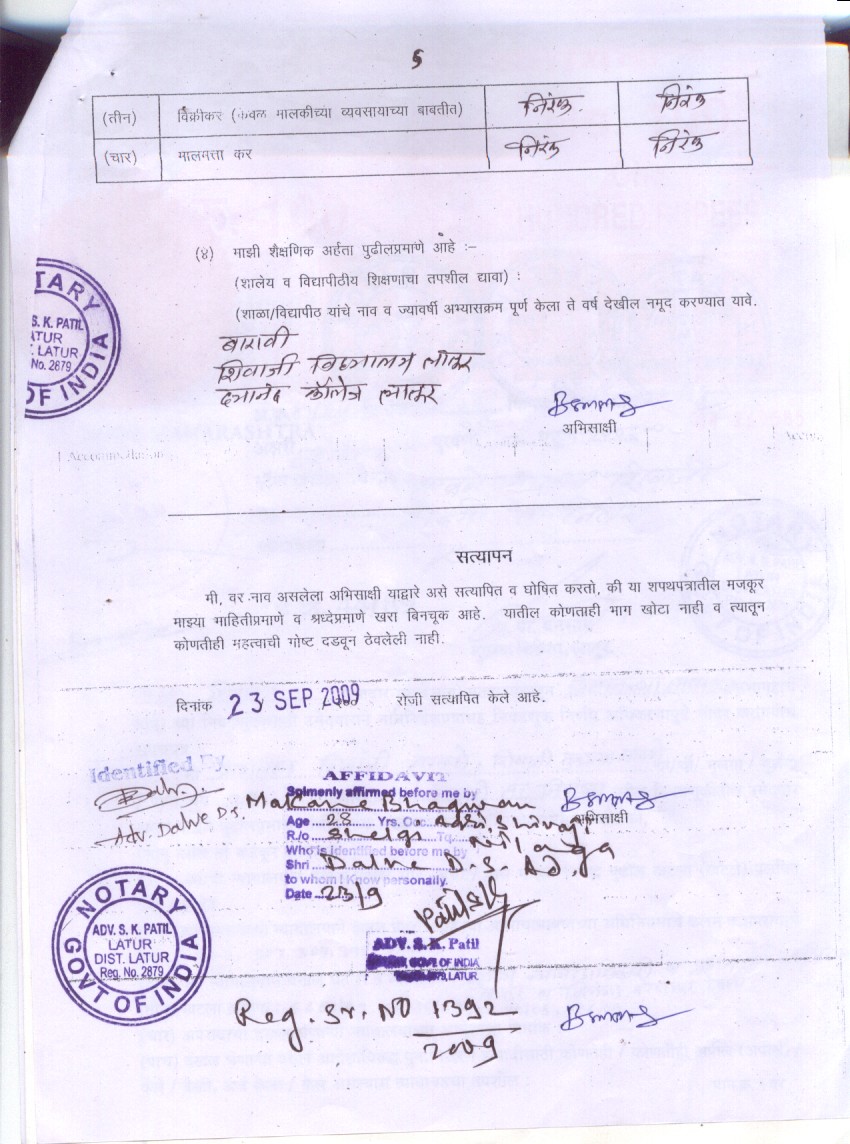 5
(तीन) विक्रीकर (केवळ मालकीच्या व्यवसायाच्या बाबतीत) निरंक निरंक
(चार) मालमत्ता कर निरंक निरंक
(४) माझी शैक्षणिक अर्हता पुढीलप्रमाणे आहे :–
(शालेय व विद्यापीठीय शिक्षणाचा तपशील द्यावा) :
(शाळा/विद्यापीठ यांचे नाव व ज्यावर्षी अभ्यासक्रम पूर्ण केला ते वर्ष देखील नमूद करण्यात यावे.
बारावी
शिवाजी विद्यालय लातूर
दयानंद कॉलेज लातूर
अभिसाक्षी
NOTARY
S. K. PATIL
LATUR
. LATUR
No. 2879
OF INDIA
सत्यापन
मी, वर नाव असलेला अभिसाक्षी याद्वारे असे सत्यापित व घोषित करतो, की या शपथपत्रातील मजकूर
माझ्या माहितीप्रमाणे व श्रध्देप्रमाणे खरा बिनचूक आहे. यातील कोणताही भाग खोटा नाही व त्यातून
कोणतीही महत्वाची गोष्ट दडवून ठेवलेली नाही.
दिनांक 23 SEP 2009 रोजी सत्यापित केले आहे.
Identified By
Adv. Dalve D.S.
AFFIDAVIT
Solmenly affirmed before me by
Makane Bhagwan
अभिसाक्षी
Age 28 Yrs. Occ.
R/o Tq. Nilanga
Who is identified before me by
Shri Dalve D. S. Adv.
to whom I Know personally.
Date 23/9
ADV. S. K. Patil
GOVT OF INDIA
2879, LATUR
NOTARY
ADV. S. K. PATIL
LATUR
DIST. LATUR
Reg. No. 2879
GOVT OF INDIA
Reg. Sr. NO 1392
2009